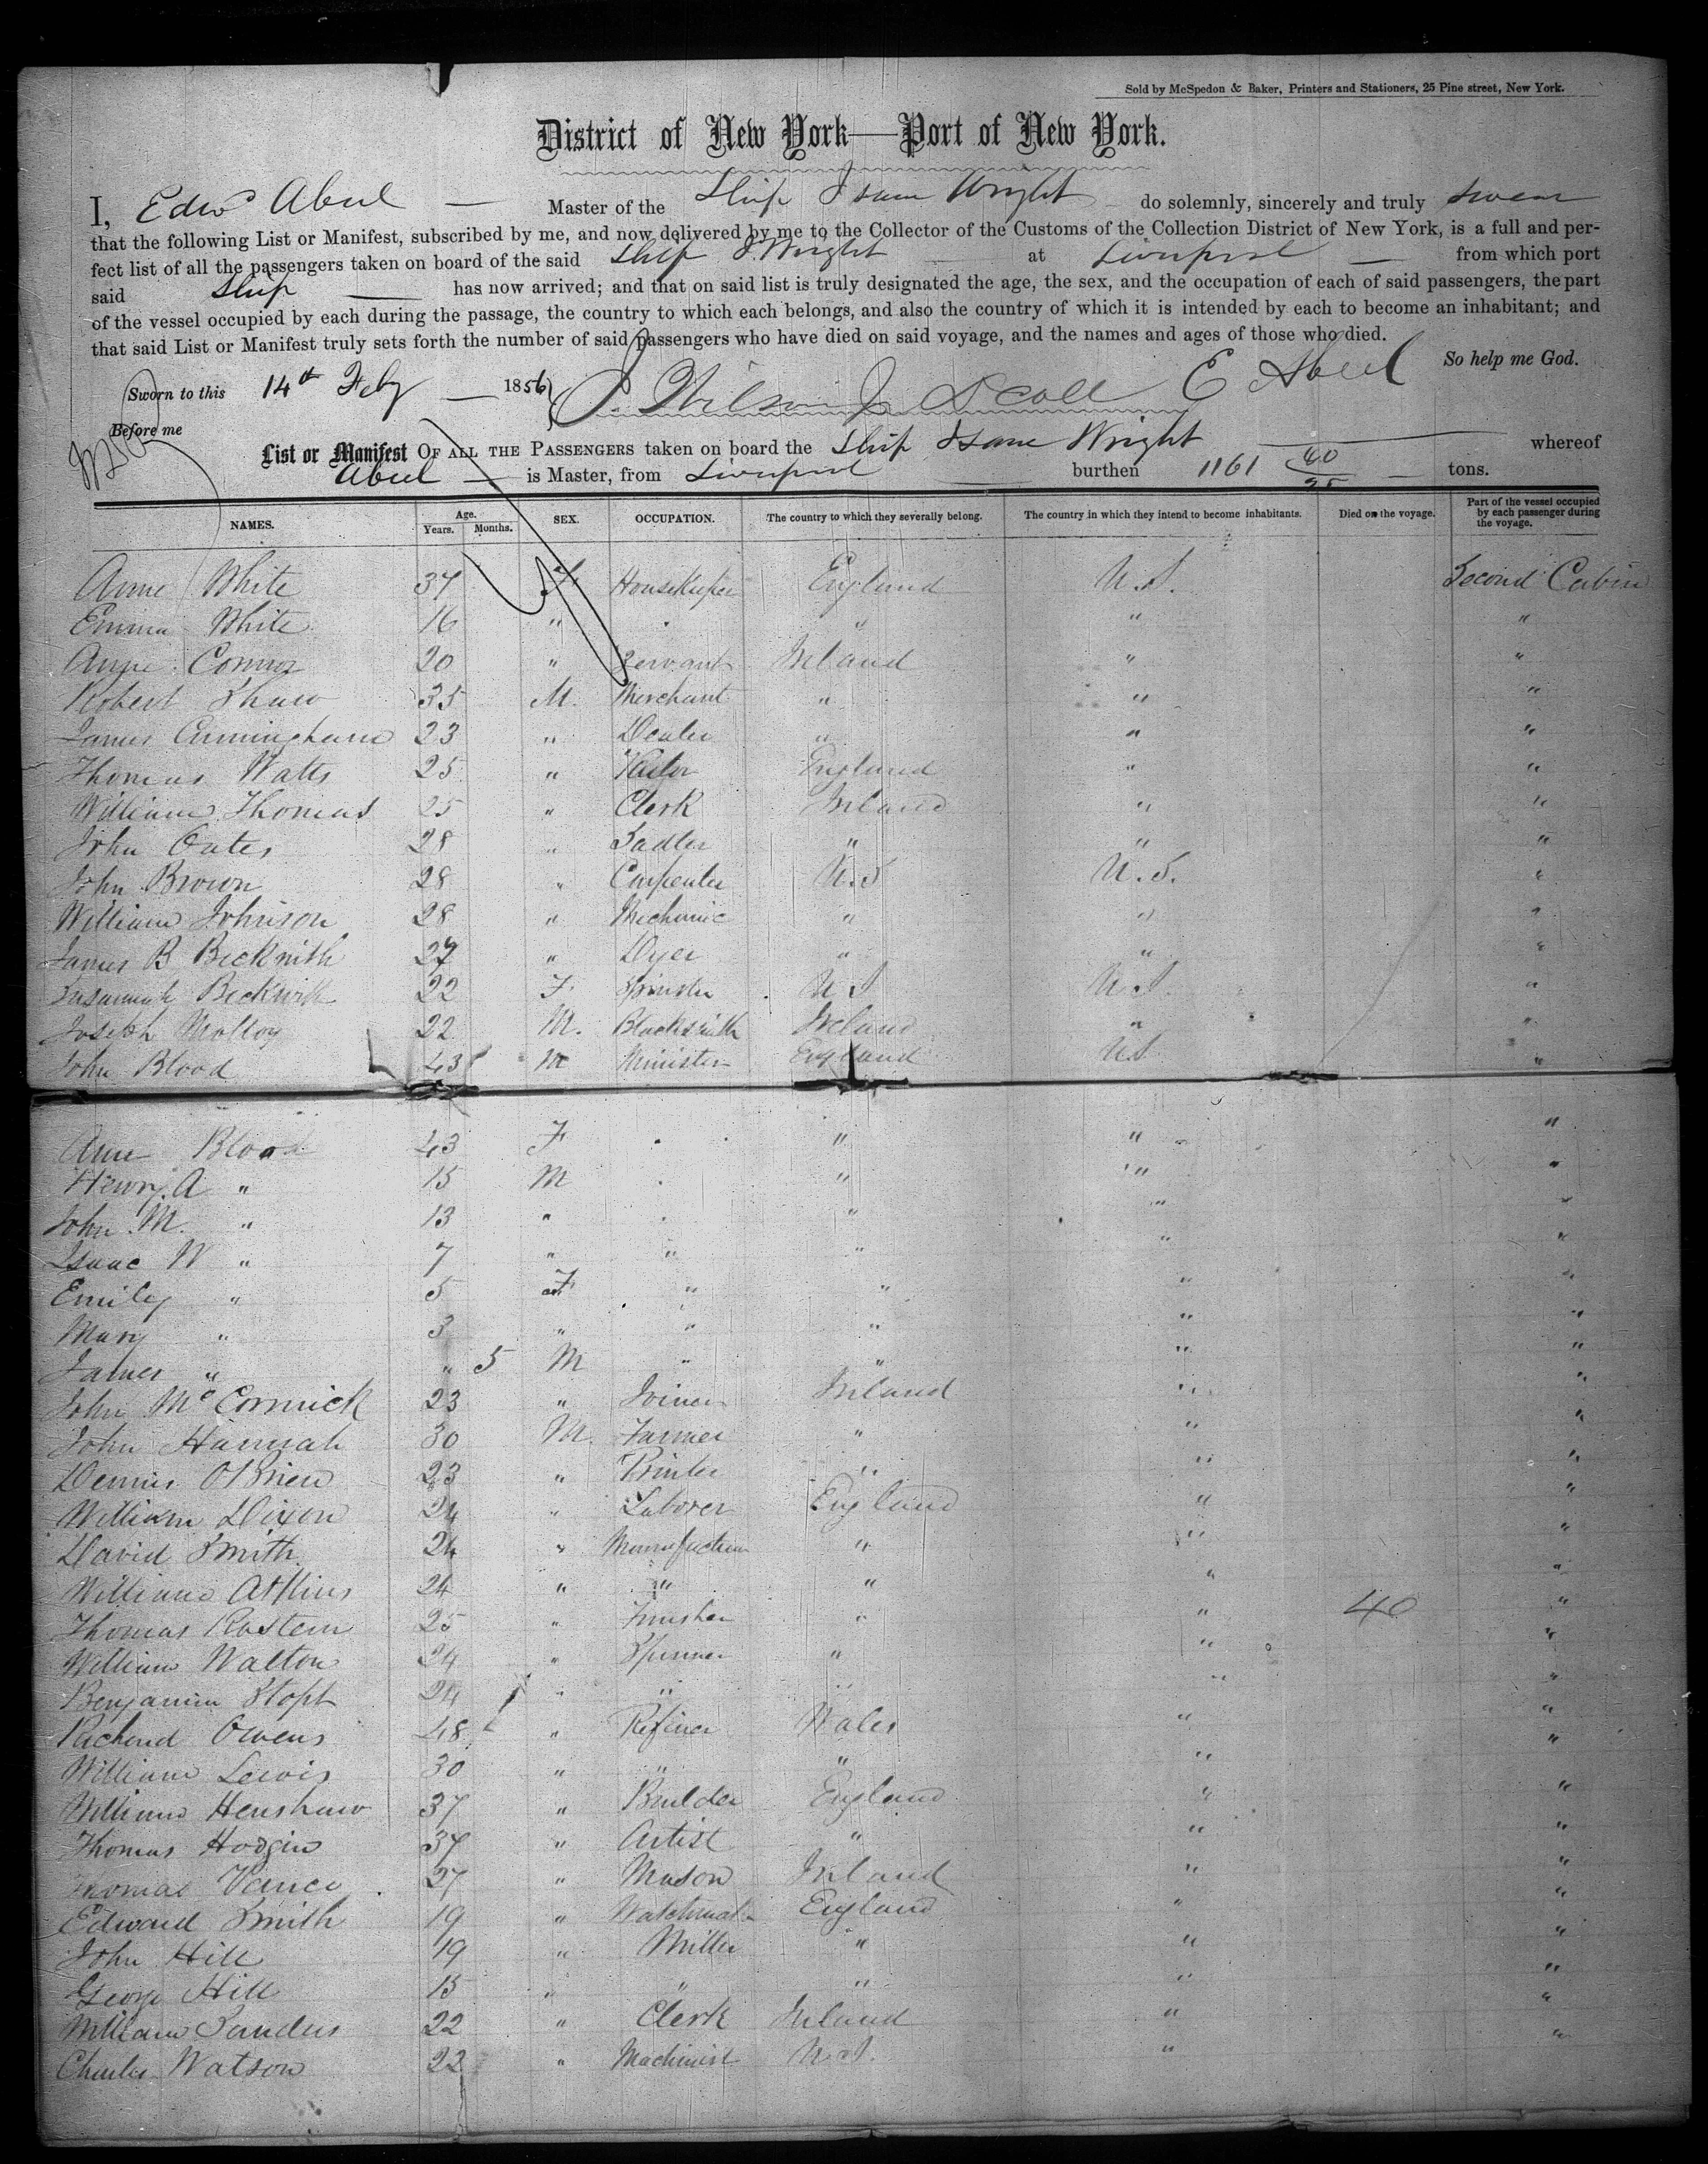 Sold by McSpedon & Baker, Printers and Stationers, 25 Pine street, New York.
District of New York—Port of New York.
I, Edwd Abeel — Master of the Ship Isaac Wright do solemnly, sincerely and truly swear
that the following List or Manifest, subscribed by me, and now delivered by me to the Collector of the Customs of the Collection District of New York, is a full and per-
fect list of all the passengers taken on board of the said Ship I. Wright — at Liverpool — from which port
said Ship — has now arrived; and that on said list is truly designated the age, the sex, and the occupation of each of said passengers, the part
of the vessel occupied by each during the passage, the country to which each belongs, and also the country of which it is intended by each to become an inhabitant; and
that said List or Manifest truly sets forth the number of said passengers who have died on said voyage, and the names and ages of those who died.
So help me God.
Sworn to this 14th Feby — 1856 E Abeel
Before me
List or Manifest OF ALL THE PASSENGERS taken on board the Ship Isaac Wright — whereof
Abeel — is Master, from Liverpool — burthen 1161 — tons.
NAMES. Age. Years. Months. SEX. OCCUPATION. The country to which they severally belong. The country in which they intend to become inhabitants. Died on the voyage. Part of the vessel occupied by each passenger during the voyage.
Anne White 37 F Housekeeper England U.S. Second Cabin
Emma White 16 " " " " "
Anne Connor 20 " Servant Ireland " "
Robert Shaw 35 M. Merchant " " "
James Cunningham 23 " Dealer " " "
Thomas Watts 25 " England " "
William Thomas 25 " Clerk Ireland " "
John Oates 28 " Sadler " " "
John Brown 28 " Carpenter U.S U.S. "
William Johnson 28 " Mechanic " " "
James B Beckwith 27 " Dyer " " "
Susannah Beckwith 22 F Spinster U S U S. "
Joseph Molloy 22 M. Blacksmith Ireland " "
John Blood 43 M Minister England U.S "
Ann Blood 43 F " " "
Henry A " 15 M " " "
John M. " 13 " " " "
Isaac W " 7 " " " " "
Emily " 5 F " " " "
Mary " 3 " " " " "
James " " 5 M " " " "
John McCormick 23 " Joiner Ireland " "
John Hannah 30 M. Farmer " " "
Dennis OBrien 23 " Printer " " "
William Dixon 24 " Laborer England " "
David Smith 24 " Manufacturer " " "
William Atkins 24 " " " " "
Thomas 25 " Finisher " " 40 "
William Walton 24 " Spinner " " "
Benjamin Stopt 24 " " " " "
Richard Owens 48 " Refiner Wales " "
William Lewis 30 " " " " "
William Henshaw 37 " Builder England " "
Thomas Hodgin 37 " Artist " " "
Thomas Vance 27 " Mason Ireland " "
Edward Smith 19 " England " "
John Hill 19 " Miller " " "
George Hill 15 " " " " "
William Sanders 22 " Clerk Ireland " "
Charles Watson 22 " Machinist U.S. " "